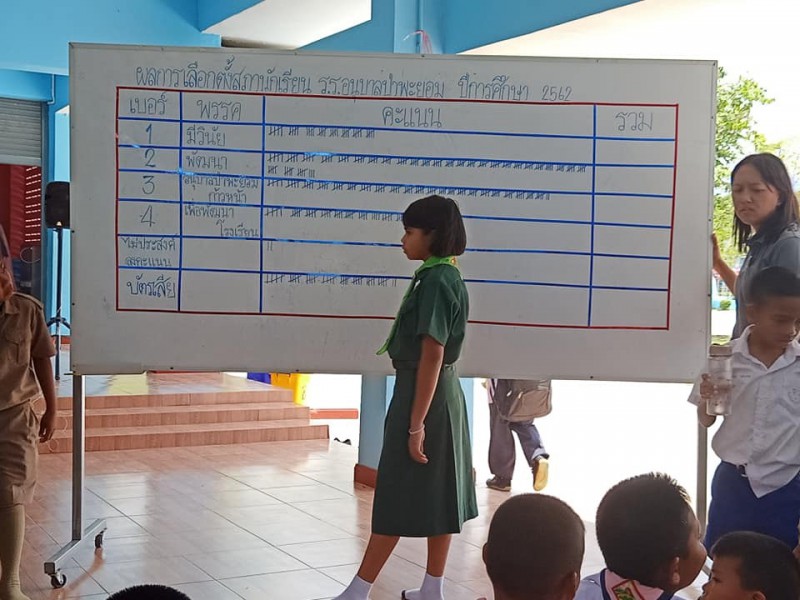 ผลการเลือกตั้งสภานักเรียน ร.ร.อนุบาลป่าพะยอม ปีการศึกษา 2562
เบอร์ พรรค คะแนน รวม
1 มีวินัย
2 พัฒนา
3 อนุบาลป่าพะยอม
ก้าวหน้า
4 เพื่อพัฒนา
โรงเรียน
ไม่ประสงค์
ลงคะแนน
บัตรเสีย